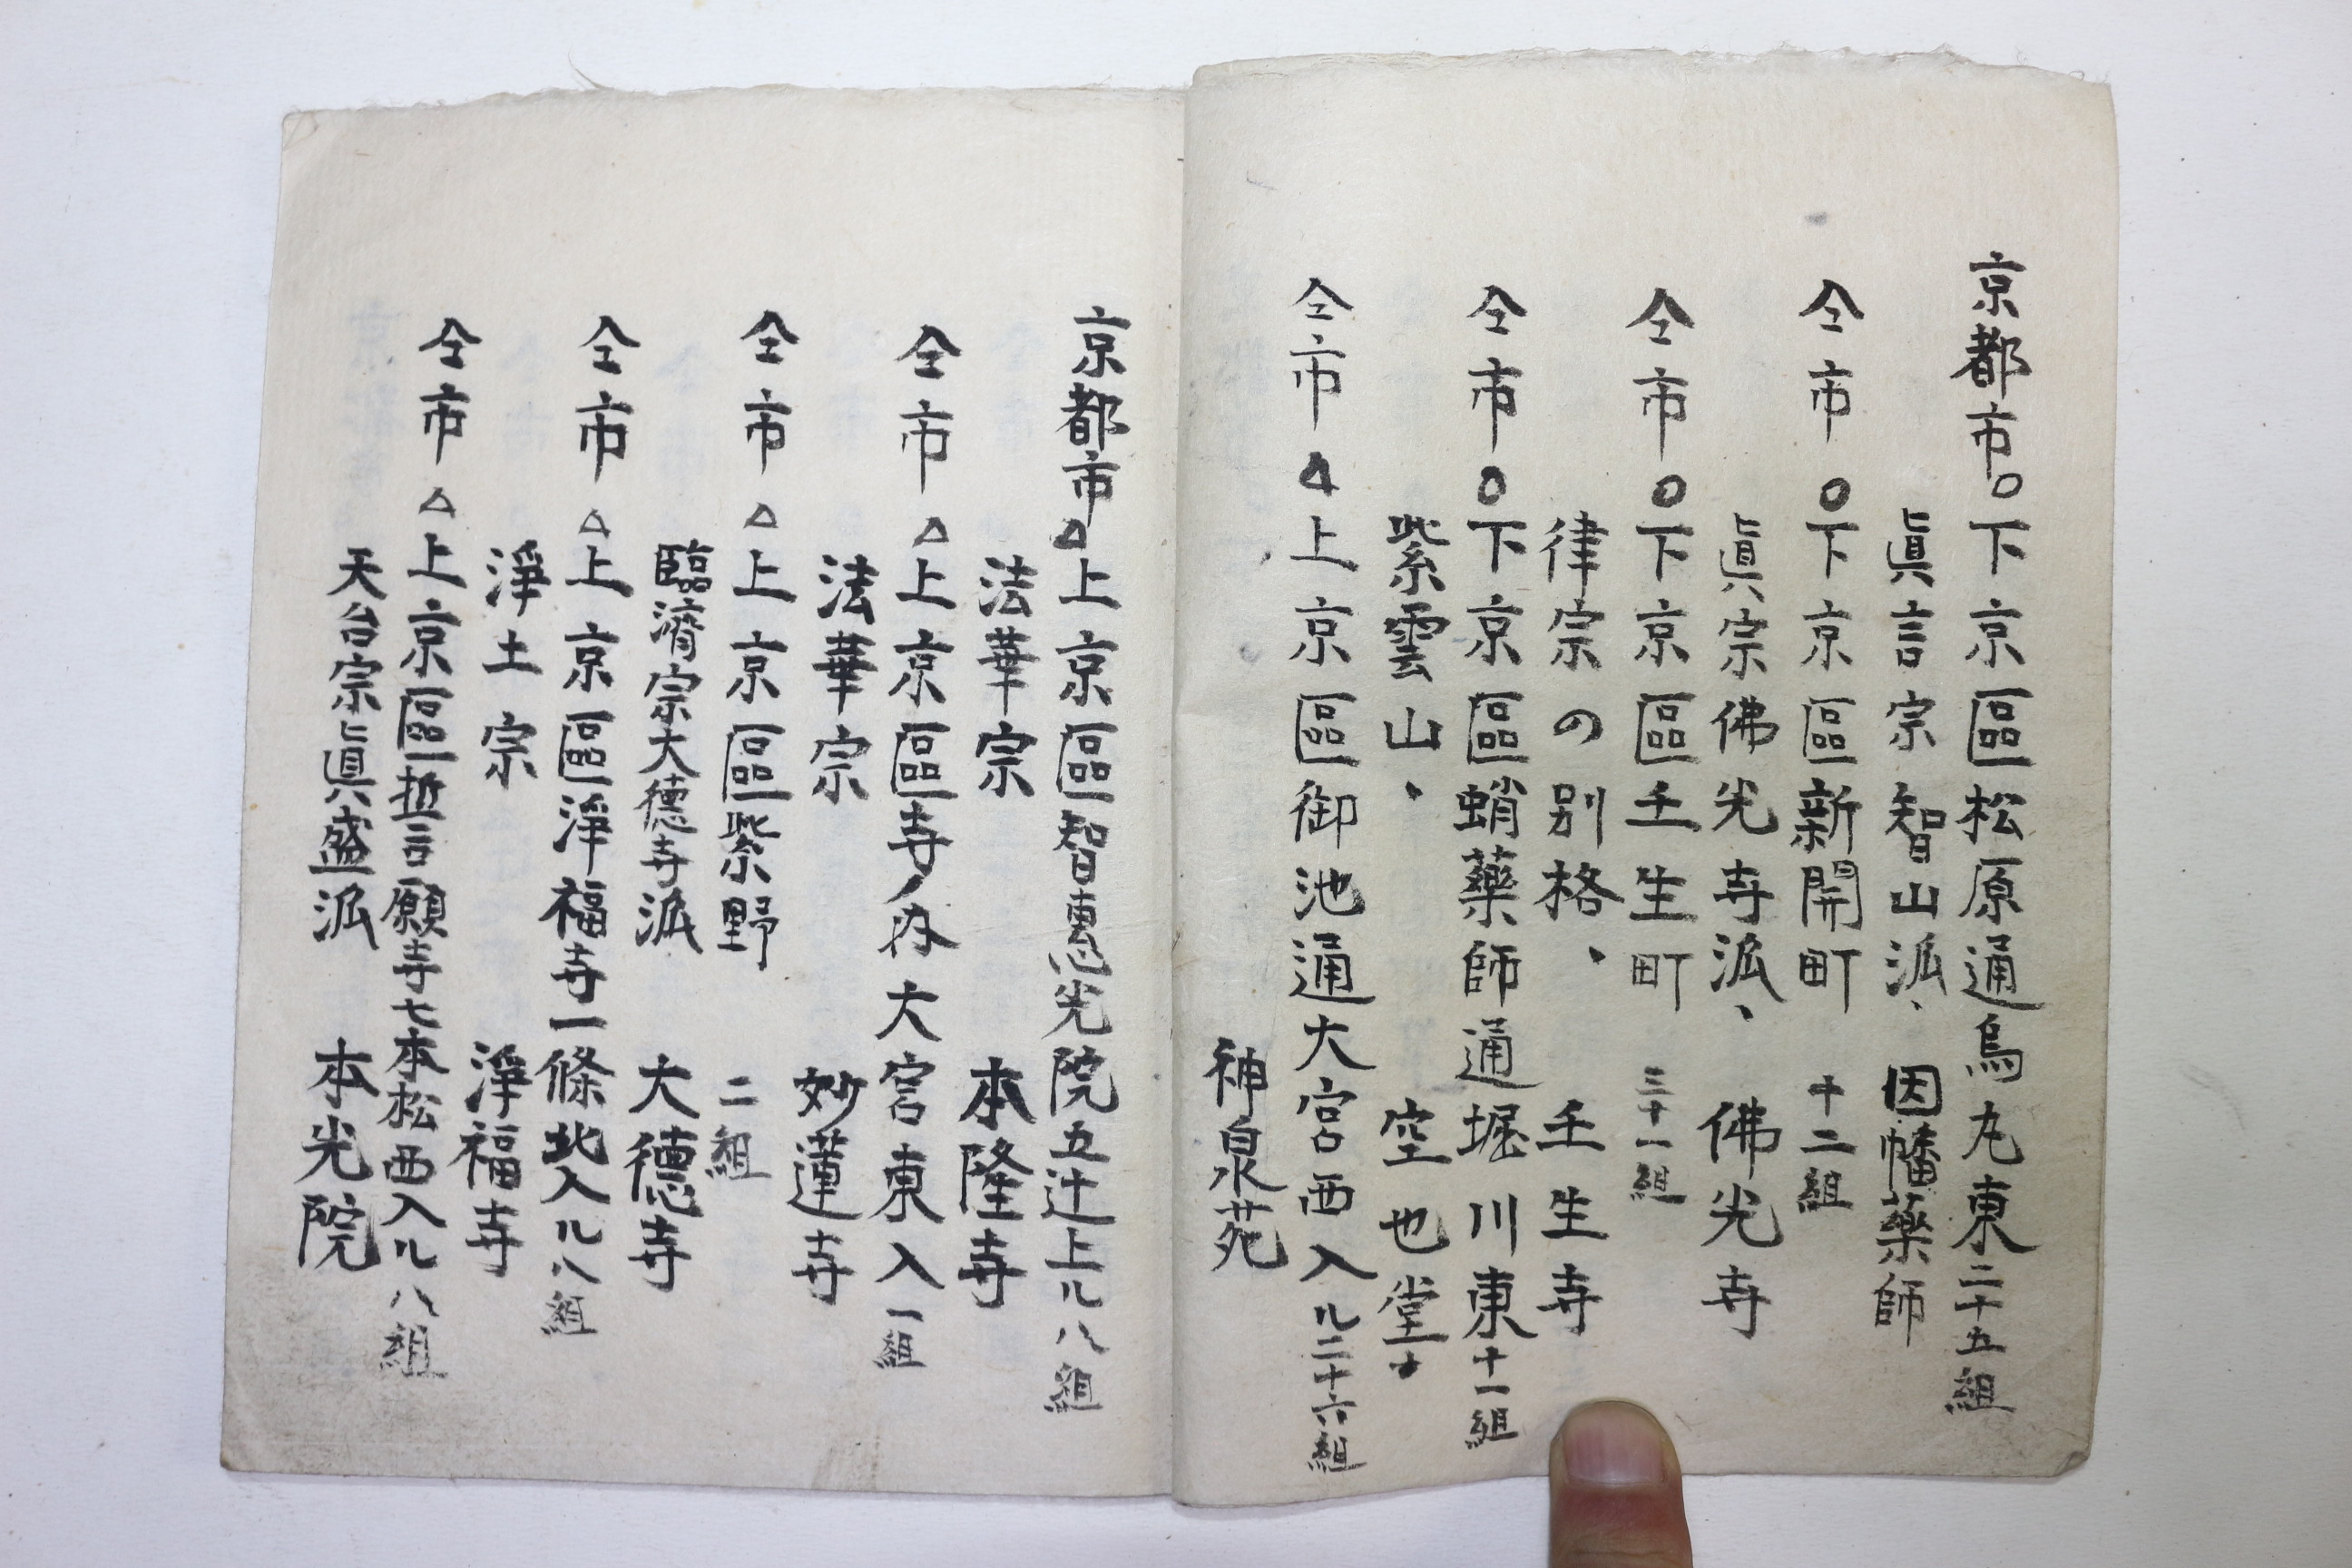 京都市○下京區松原通烏丸東二十五組
眞言宗智山派、因幡藥師
仝市○下京區新開町十二組
眞宗佛光寺派、佛光寺
仝市○下京區壬生町三十一組
律宗の別格、壬生寺
仝市○下京區蛸藥師通堀川東十一組
紫雲山、空也堂
仝市△上京區御池通大宮西入ル二十六組
神泉苑
京都市△上京區智惠光院五辻上ル八組
法華宗 本隆寺
仝市△上京區寺ノ内大宮東入一組
法華宗 妙蓮寺
仝市△上京區紫野 二組
臨濟宗大德寺派 大德寺
仝市△上京區淨福寺一條北入ル八組
淨土宗 淨福寺
仝市△上京區誓願寺七本松西入ル八組
天台宗眞盛派 本光院